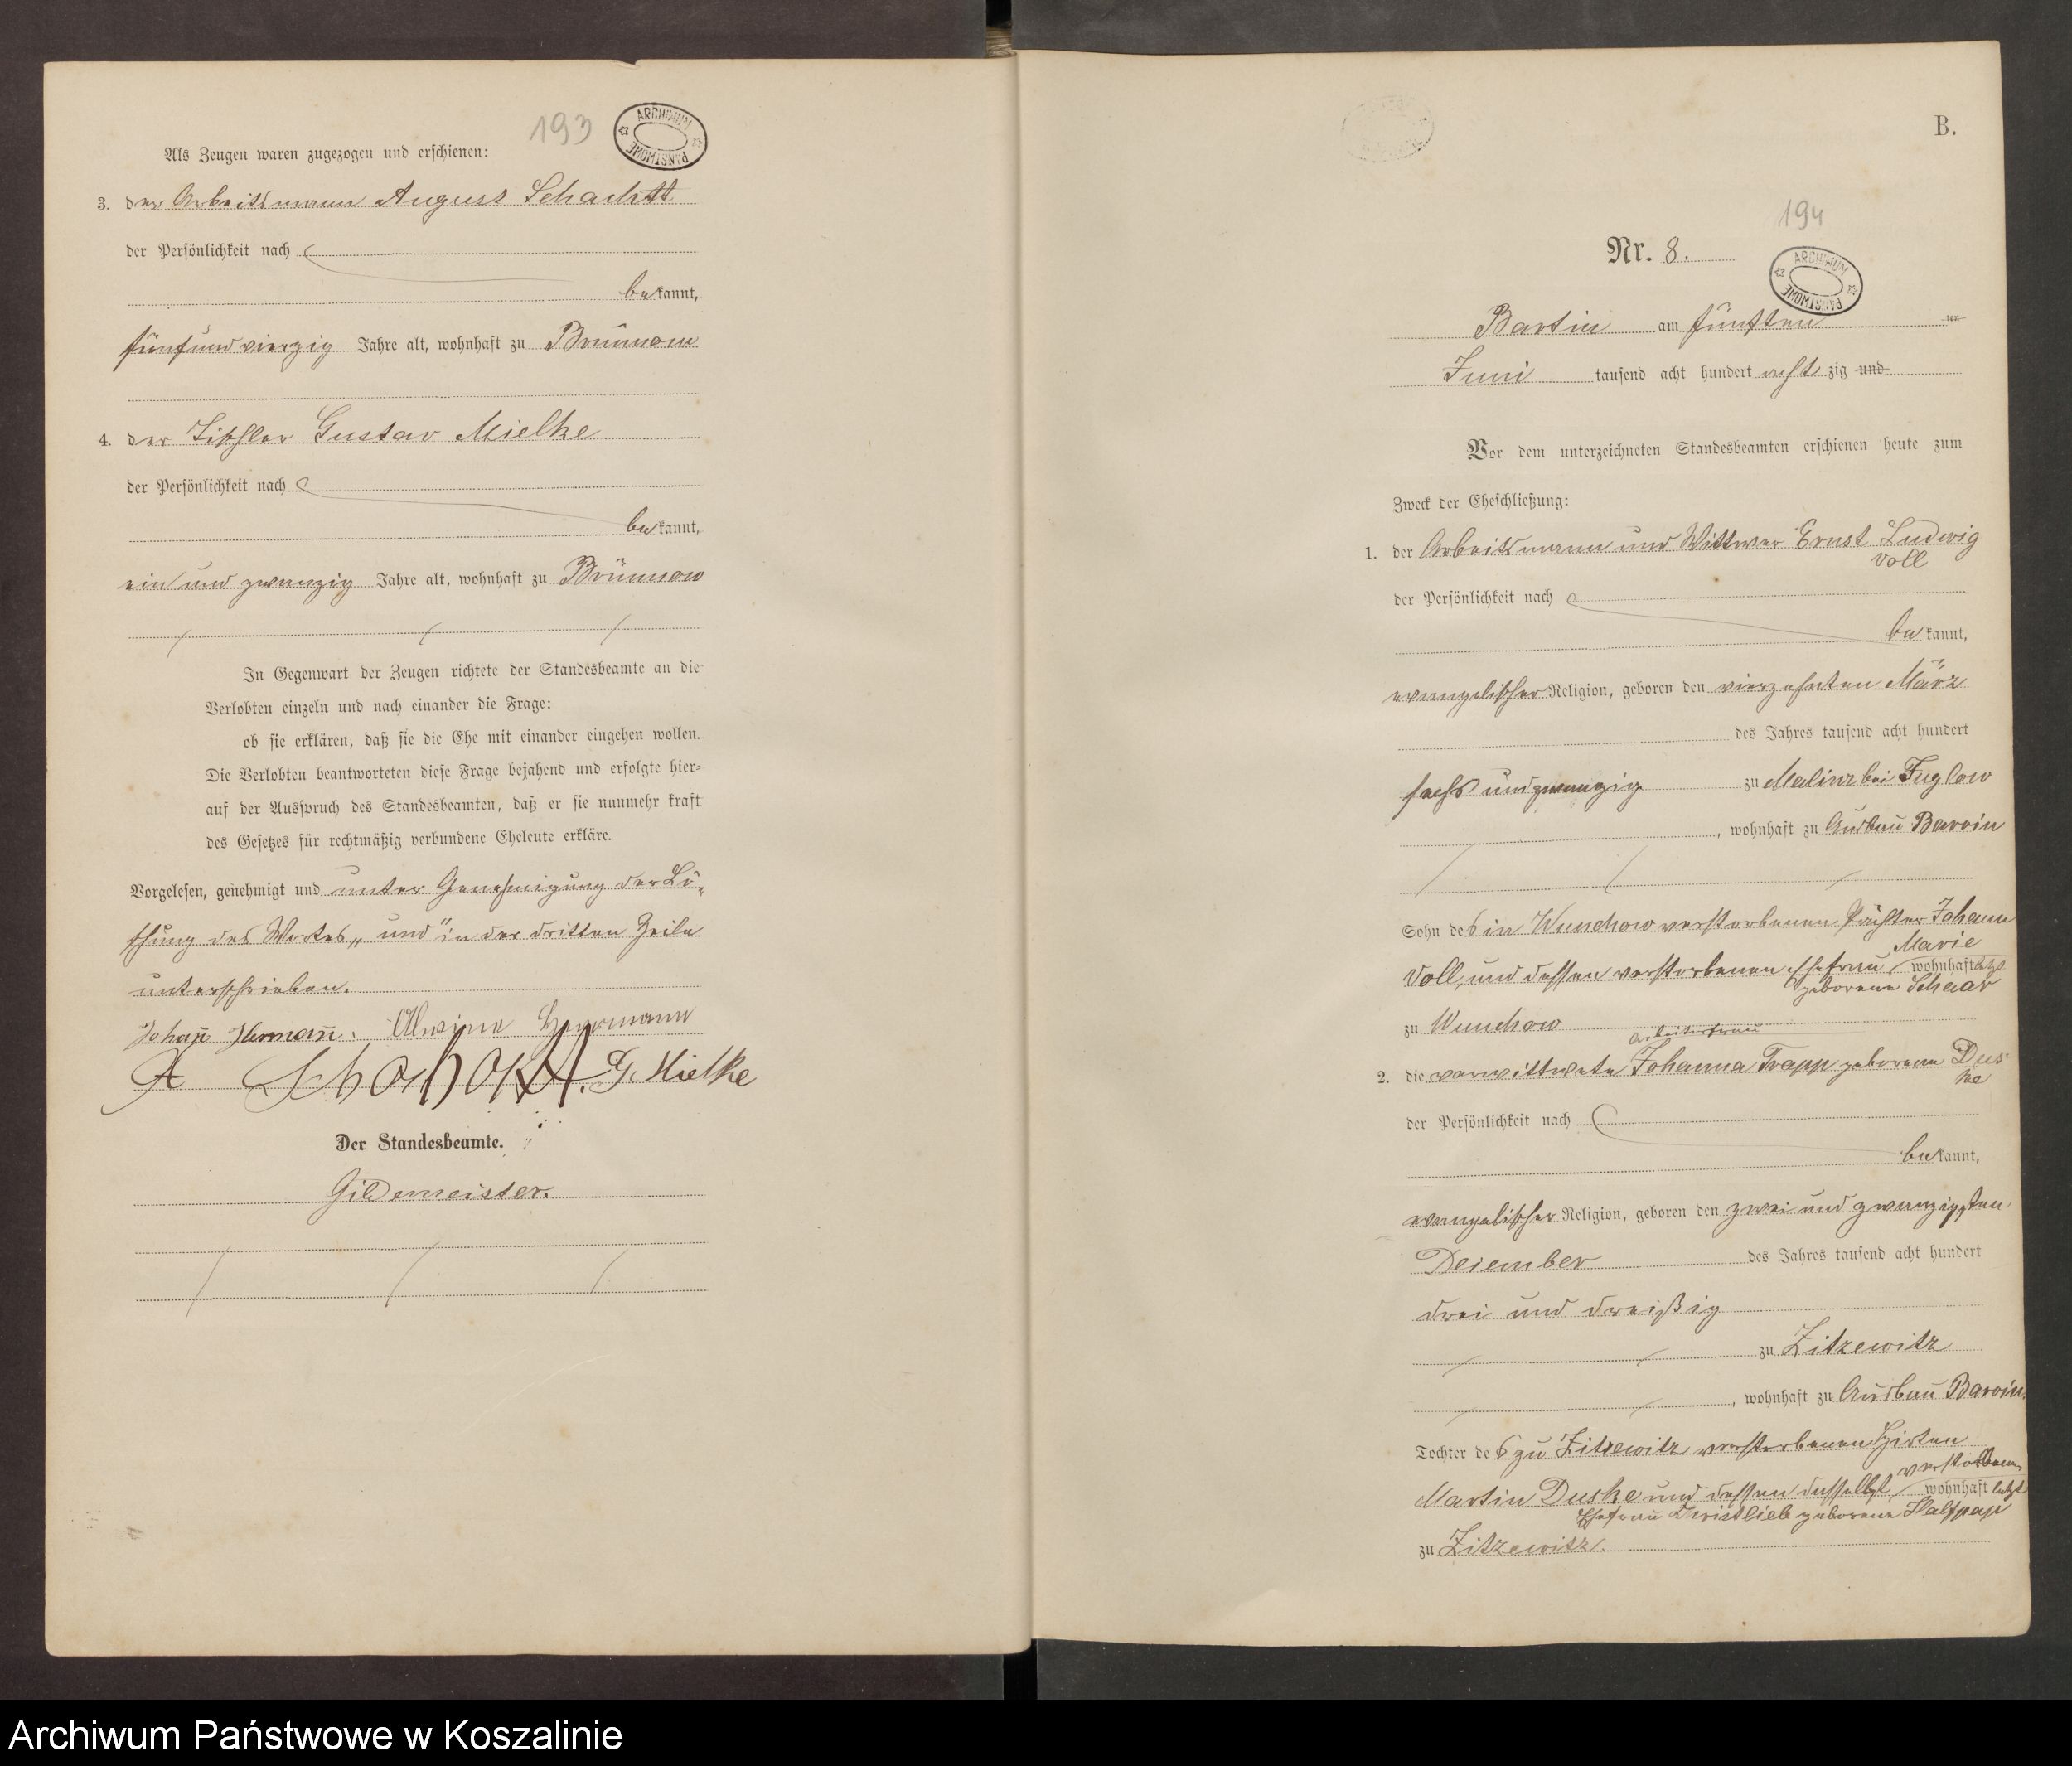 193
ARCHIWUM PAŃSTWOWE
Als Zeugen waren zugezogen und erschienen:
3. der Arbeitsmann August Schachtt
der Persönlichkeit nach
be kannt,
fünf und vierzig Jahre alt, wohnhaft zu Brünnow
4. der Tischler Gustav Mielke
der Persönlichkeit nach
be kannt,
ein und zwanzig Jahre alt, wohnhaft zu Brünnow
In Gegenwart der Zeugen richtete der Standesbeamte an die
Verlobten einzeln und nach einander die Frage:
ob sie erklären, daß sie die Ehe mit einander eingehen wollen.
Die Verlobten beantworteten diese Frage bejahend und erfolgte hier=
auf der Ausspruch des Standesbeamten, daß er sie nunmehr kraft
des Gesetzes für rechtmäßig verbundene Eheleute erkläre.
Vorgelesen, genehmigt und unter Genehmigung der Lö-
schung des Wortes „und" in der dritten Zeile
unterschrieben.
Johañ Hermañ. Alwine Herrmann
A Schachtt. G Mielke
Der Standesbeamte.
Gildemeister.
B.
194
Nr. 8.
ARCHIWUM PAŃSTWOWE
Bartin am fünften ten
Juni tausend acht hundert acht zig und
Vor dem unterzeichneten Standesbeamten erschienen heute zum
Zweck der Eheschließung:
1. der Arbeitsmann und Wittwer Ernst Ludwig
Voll
der Persönlichkeit nach
be kannt,
evangelischer Religion, geboren den vierzehnten März
des Jahres tausend acht hundert
sechs und zwanzig zu bei
, wohnhaft zu Ausbau Barvin
Sohn des in Wundichow verstorbenen Pächter Johann
Voll, und dessen verstorbenen Ehefrau Marie
geborene Schaar wohnhaft letzt
zu Wundichow
Arbeiterfrau
2. die verwittwete Johanna Trapp geborene Dus
ke
der Persönlichkeit nach
be kannt,
evangelischer Religion, geboren den zwei und zwanzigsten
Dezember des Jahres tausend acht hundert
drei und dreißig
zu Zitzewitz
, wohnhaft zu Ausbau Barvin
Tochter des zu Zitzewitz verstorbenen Hirten
Martin Duske und dessen daselbst verstorbenen
Ehefrau geborene Halfpap wohnhaft letzt
zu Zitzewitz.
Archiwum Państwowe w Koszalinie